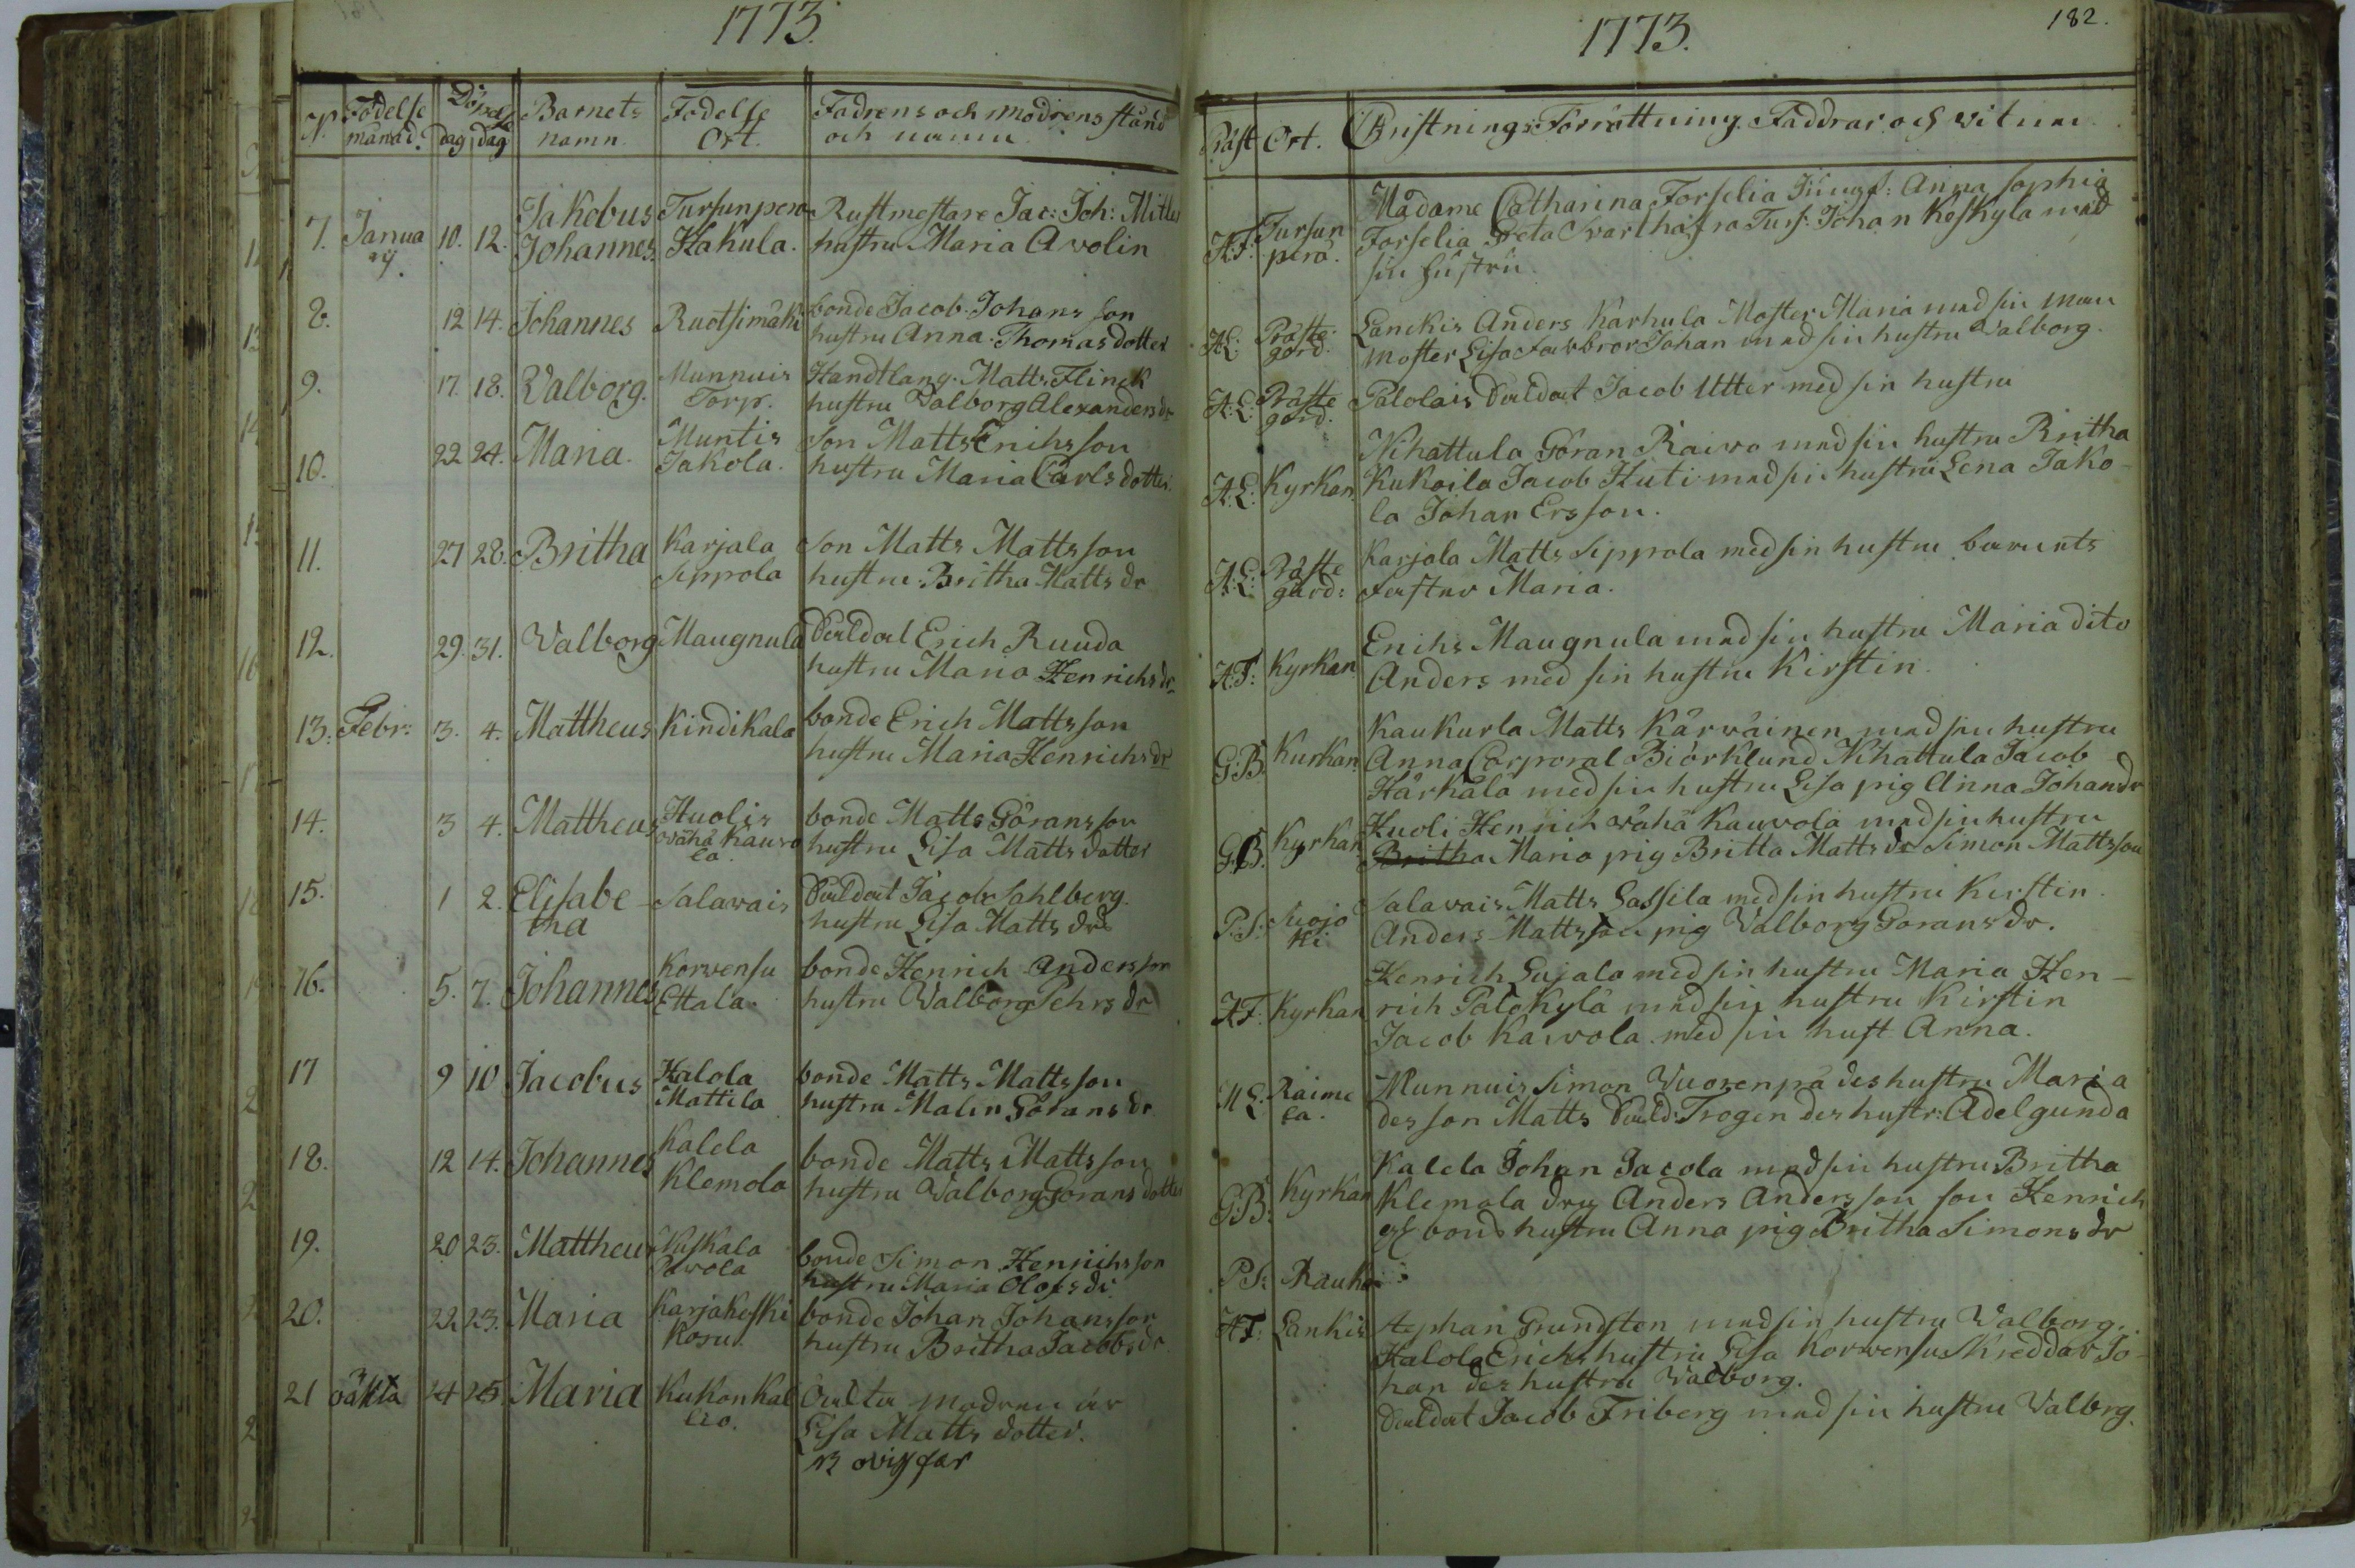 1773.
N. Födelse Döpelse Barnets Födelse Fadrens och modrens stånd
månad. dag dag namn. Ort. och namn
7. Janua 10. 12. Jakobus Tursunperä Rustmestare Jac: Joh: Mitler
ry. Johannes. Hakula. hustru Maria Avolin
8. 12 14. Johannes Ruotsimäki bonde Jacob Johans son
hustru Anna Thomas dotter
9. 17. 18. Valborg. Munnuis Handtlang. Matts Flinck
Torp. hustru Valborg Alexanders dr
10. 22 24. Maria. Muntis Son Matts Erichs son
Jakola. hustru Maria Carls dotter.
11. 27 28. Britha Karjala Son Matts Matts son
Sippola hustru Britha Matts dr
12. 29. 31. Valborg Maugnula Soldat Erich Ruuda
hustru Maria Henrichs dr
13. Febr: 3. 4. Mattheus Kindikala bonde Erich Matts son
hustru Maria Henrichs dr
14. 3 4. Mattheus Huolis bonde Matts Görans son
wähä Kauvo hustru Lisa Matts dotter
la.
15. 1 2. Elisabe Salavais Soldat Jacob Sahlberg.
tha hustru Lisa Matts dr
16. 5. 7. Johannes Korvensu bonde Henrich Anders son
Ettala. hustru Valborg Pehrs dr
17 9 10 Jacobus Halola bonde Matts Matts son
Mattila hustru Malin Görans dr
18. 12 14. Johannes Kalela bonde Matts Matts son
Klemola hustru Valborg Görans dotter
19. 20 23. Mattheus Kuskala bonde Simon Henrichs son
Pavola hustru Maria Olofs dr.
20. 22. 23. Maria Karjakoski bonde Johan Johans son
Kosu. hustru Britha Jacobs dr
21 oäkta 24 25 Maria Kukonkal Oächta modren är
lio. Lisa Matts dotter.
182.
1773.
Präst Ort. Christnings Förrättning. Faddrar och vitnen
Madame Catharina Forselia Jungf: Anna Sophia
H.F: Tursun Forselia Greta Svarthafra Turs: Johan Keskyla med
perä. sin hustru
A:L: Präste Lanckis Anders Karhula Moster Maria med sin man
gård. Moster Lisa Farbror Johan med sin hustru Valborg.
A:L: Präste Palolais Soldat Jacob Utter med sin hustru
gård.
Nihattula Göran Raivo med sin hustru Britha
A:L: Kyrkan. Kukoila Jacob Huti med sin hustru Lena Jako-
la Johan Ersson.
A:L: Präste Karjola Matts Sippola med sin hustru barnets
gård: Faster Maria.
Erichs Maugnula med sin hustru Maria dito
H.F: Kyrkan. Anders med sin hustru Kirstin
Kaukurla Matts Kärväinen med sin hustru
G:B. Kurkan. Anna Corporal Biörklund Nihattula Jacob
Härkälä med sin hustru Lisa pig Anna Johans dr
Huoli Henrich wähä Kauvola med sin hustru
G:B. Kyrkan Britha Maria pig Britta Matts dr Simon Mattsson
Salavais Matts Lassila med sin hustru Kirstin.
P.S: Suojo Anders Mattsson pig Valborg Görans dr.
ki
Henrich Lujala med sin hustru Maria Hen-
H.F. Kyrkan rich Palokylä med sin hustru Kirstin
Jacob Kawola med sin hust Anna.
M L: Raime Munnuis Simon Vuorenpä des hustru Maria
la. des son Matts Sold: Trogen des hustr: Adelgunda
Kalela Johan Jacola med sin hustru Britha
G:B: Kyrkan Klemola dreg Anders Andersson son Henrich
och bond hustru Anna pig Britha Simons dr
P.S:
H.F: Lankis Stephan Grundsten med sin hustru Valborg.
Halola Erichs hustru Lisa Korvensu Skreddar Jo-
han des hustru Valborg.
Soldat Jacob Friberg med sin hustru Valbrg.